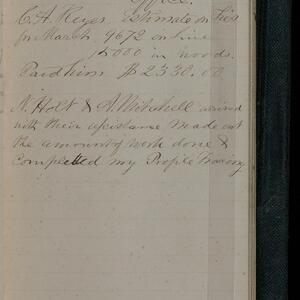 Office.
C. H. Keyes. Estimate on Ties
for March 9672 on line
5000 in woods.
Paid him $2338.00
N. Holt & A. Mitchell arrived
with their assistance made out
the amount of work done &
completed my Profile Tracing